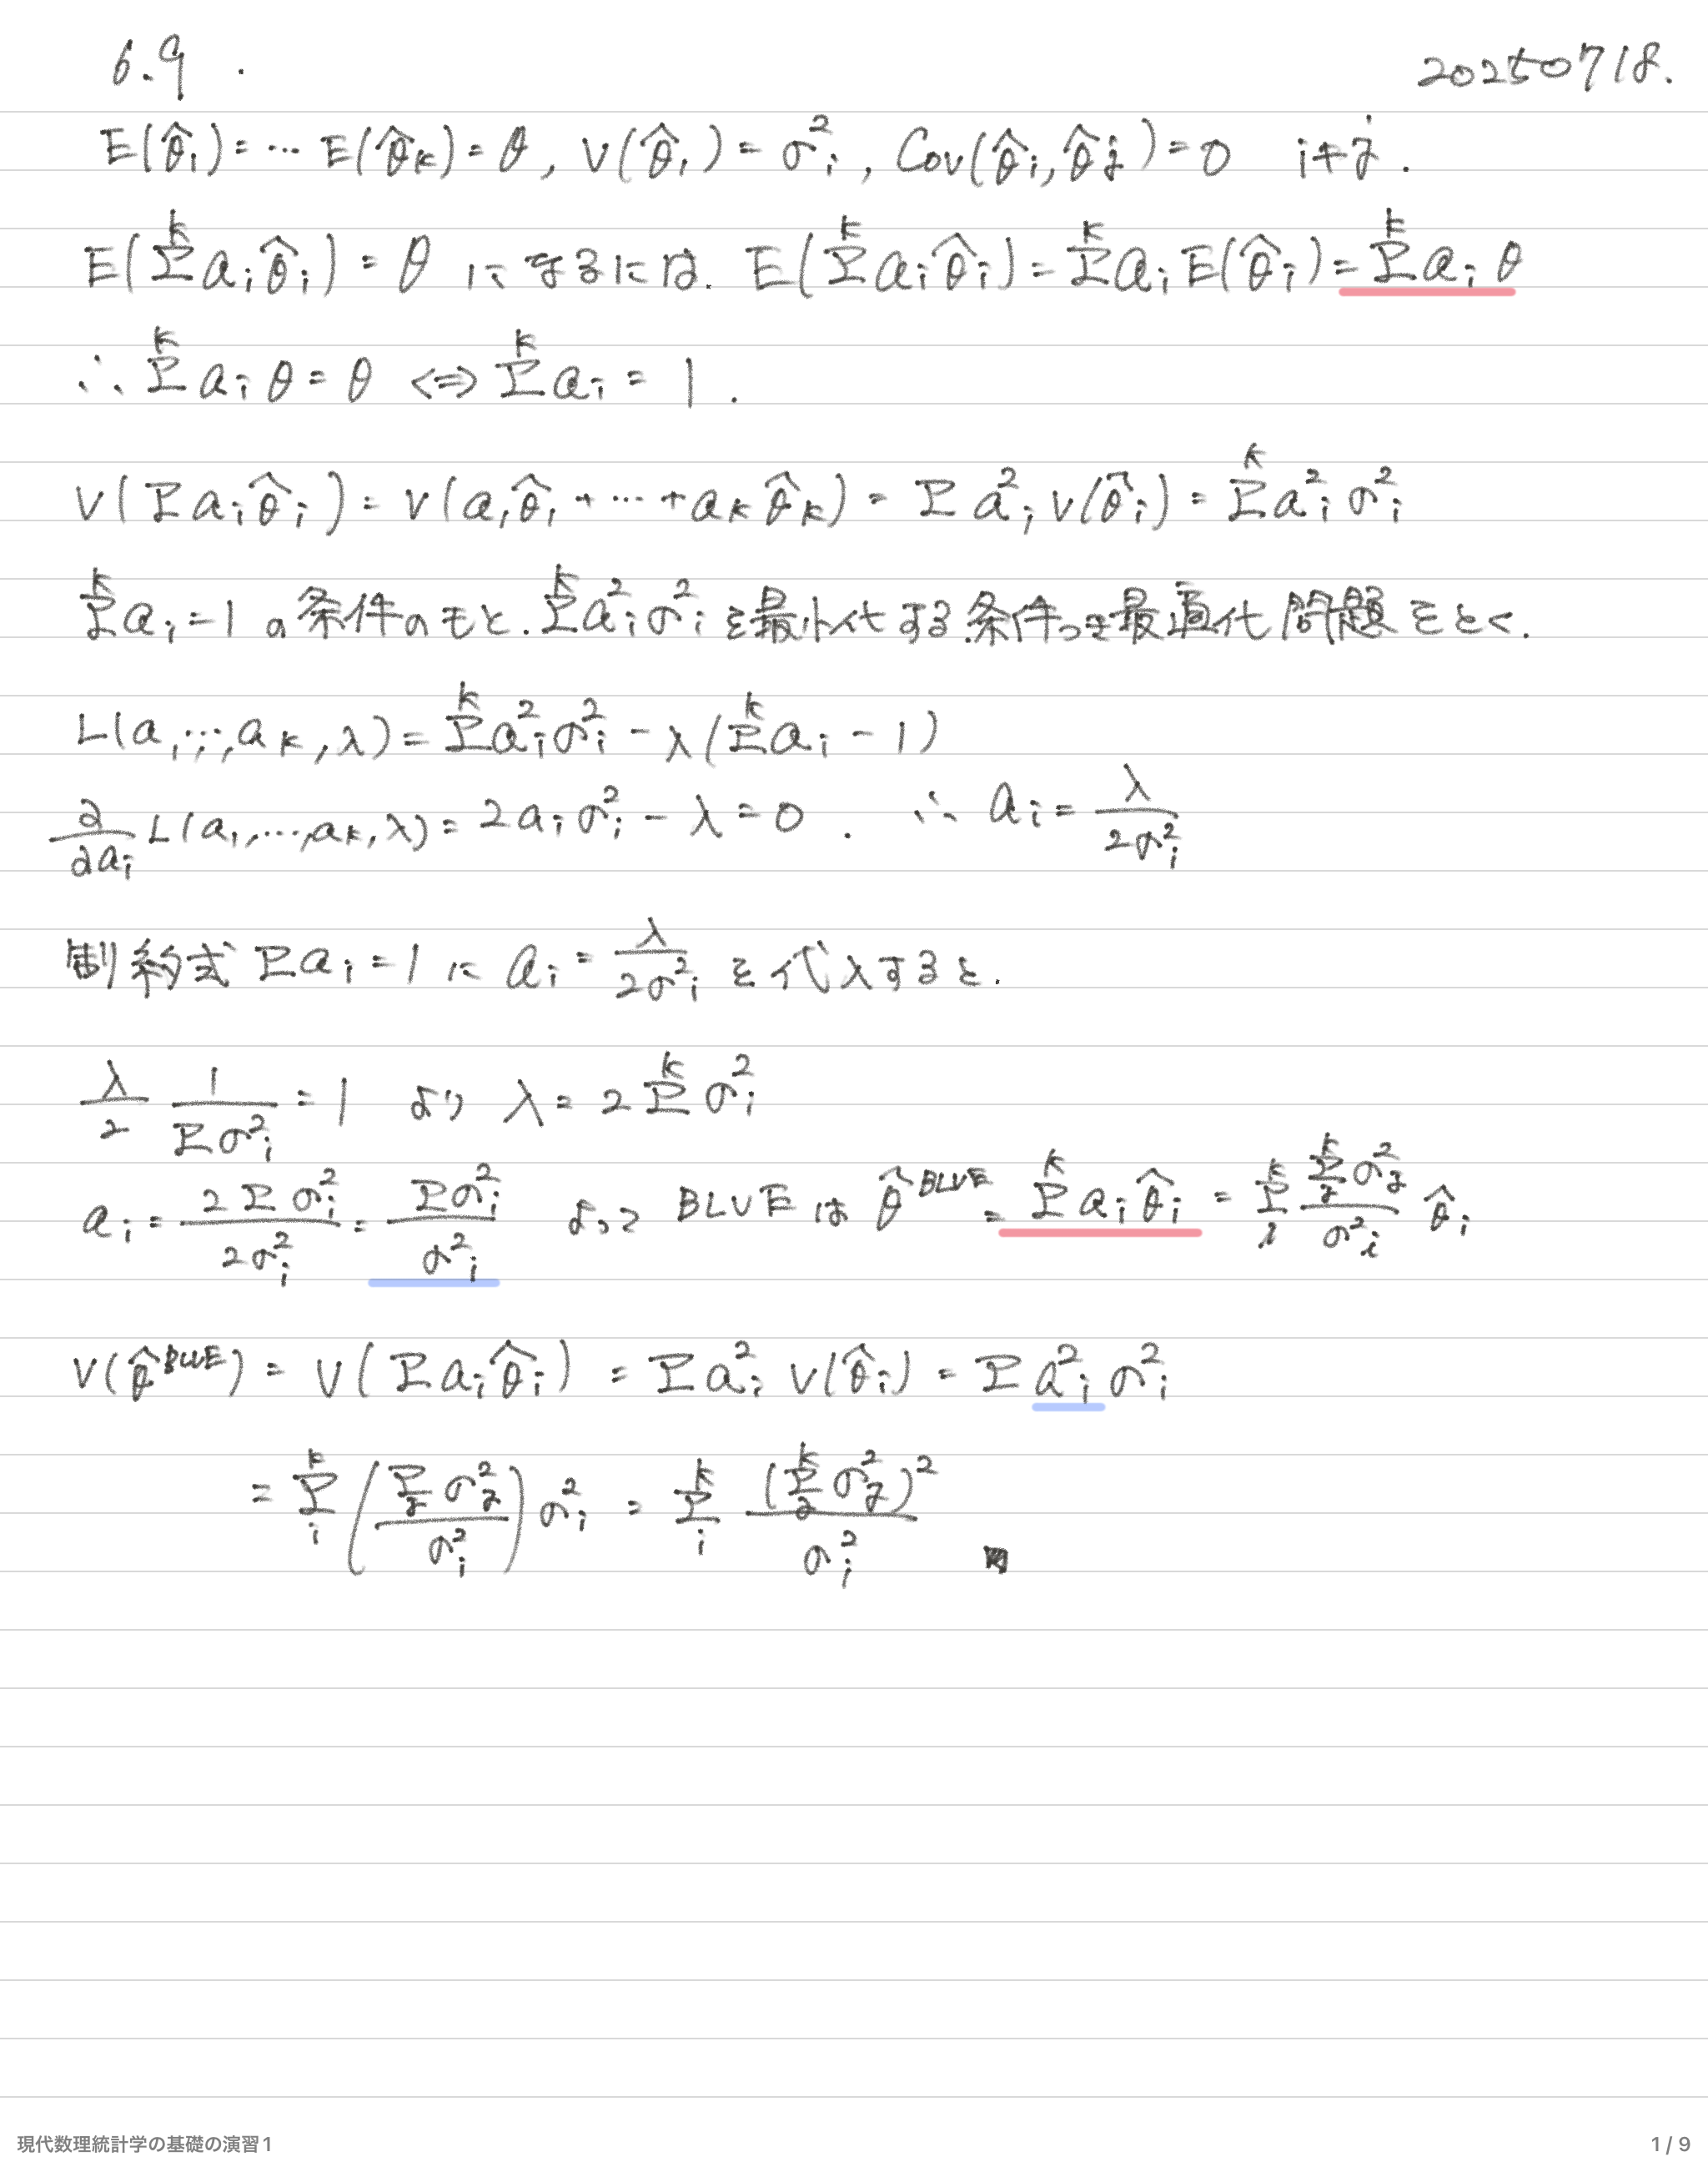 6.9 . 20250718.
E(θ̂₁) = … E(θ̂ₖ) = θ , V(θ̂ᵢ) = σᵢ² , Cov(θ̂ᵢ, θ̂ⱼ) = 0 i≠j .
E(Σᵏ aᵢ θ̂ᵢ) = θ になるには. E(Σᵏ aᵢ θ̂ᵢ) = Σᵏ aᵢ E(θ̂ᵢ) = Σᵏ aᵢ θ
∴ Σᵏ aᵢ θ = θ ⇔ Σᵏ aᵢ = 1 .
V(Σ aᵢ θ̂ᵢ) = V(a₁ θ̂₁ + … + aₖ θ̂ₖ) = Σ aᵢ² V(θ̂ᵢ) = Σᵏ aᵢ² σᵢ²
Σᵏ aᵢ = 1 の条件のもと. Σᵏ aᵢ² σᵢ² を最小化する.条件つき最適化問題をとく.
L(a₁, …, aₖ, λ) = Σᵏ aᵢ² σᵢ² - λ(Σᵏ aᵢ - 1)
∂/∂aᵢ L(a₁, …, aₖ, λ) = 2aᵢ σᵢ² - λ = 0 . ∴ aᵢ = λ/2σᵢ²
制約式 Σ aᵢ = 1 に aᵢ = λ/2σᵢ² を代入すると.
λ/2 1/Σσᵢ² = 1 より λ = 2 Σᵏ σᵢ²
aᵢ = 2 Σ σᵢ²/2σᵢ² = Σσᵢ²/σᵢ² よって BLUE は θ̂^BLUE = Σᵏ aᵢ θ̂ᵢ = Σᵢᵏ Σⱼᵏ σⱼ²/σᵢ² θ̂ᵢ
V(θ̂^BLUE) = V(Σ aᵢ θ̂ᵢ) = Σ aᵢ² V(θ̂ᵢ) = Σ aᵢ² σᵢ²
= Σᵢᵏ (Σⱼ σⱼ²/σᵢ²) σᵢ² = Σᵢᵏ (Σⱼᵏ σⱼ²)²/σᵢ²
現代数理統計学の基礎の演習1 1 / 9